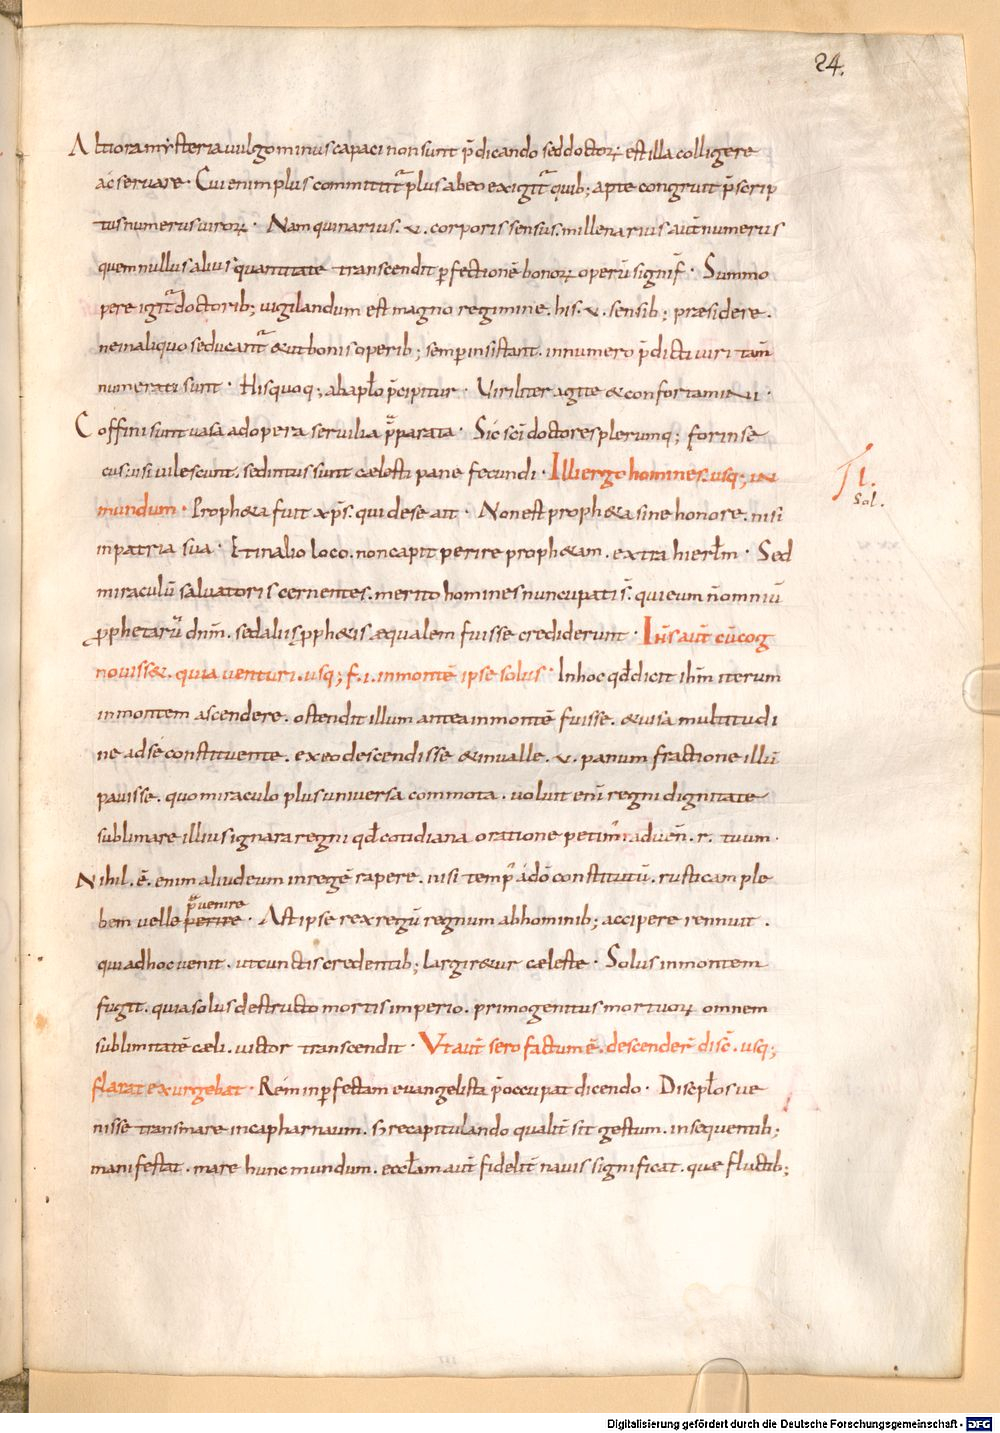 24.
Altiora mysteria uulgo minus capaci non sunt p̄dicando sed doctorꝝ est illa colligere
ac seruare · Cui enim plus committitᷓ plus ab eo exigitᷓ quib; apte congruit p̄scrip
tus numerus uirorꝝ · Nam quinarius .v. corporis sensus. millenarius aut̄ numerus
quem nullus alius quantitate transcendit ꝑfectionē bonorꝝ operū signif̄ · Summo
pere igitᷓ doctorib; uigilandum est magno regimine. his .v. sensib; præsidere.
ne in aliquo seducantᷓ & ut bonis operib; semꝑ insistant. in numero p̄dicti uiri tam̄
numerati sunt · His quoq; ab apło p̄cipitur · Viriliter agite & confortamini ·
Coffini sunt uasa ad opera seruilia p̄parata · Sic sc̄i doctores plerumq; forinse
cus uisi uilescunt. sed intus sunt cælesti pane fecundi · Illi ergo homines. usq; in
mundum · Propheta fuit xp̄s. qui de se ait · Non est proph&a sine honore. nisi
in patria sua · Et in alio loco. non capit perire proph&am. extra hierł̄m · Sed
sol.
miraculū saluatoris cernentes. merito homines nuncupati s̄. qui eum n̄ omniū
ꝓphetarū dnm̄. sed aliis ꝓph&is æqualem fuisse crediderunt · Ihs̄ aut̄ cū cog
nouiss&. quia uenturi. usq; f. i. in montē ipse solus · In hoc qđ dicit ihm̄ iterum
in montem ascendere. ostendit illum antea in montē fuisse. & uisa multitudi
ne ad se confluente. ex eo descendisse & in ualle .v. panum fractione illū
pauisse. quo miraculo plus uniuersa commota. uoluit eum regni dignitate
sublimare illius ignara regni qđ cotidiana oratione petim̓. adueń. r. tuum ·
Nihil .ē. enim aliud eum in regē rapere. nisi temp̓ a dō constitutū. rusticam ple
bem uelle perire p̄uenire · Ast ipse rex regū regnum ab hominib; accipere rennuit.
qui ad hoc uenit. ut cunctis credentib; largir&ur cæleste · Solus in montem
fugit. quia solus destructo mortis imperio. primogenitus mortuorꝝ omnem
sublimitatē cæli. uictor transcendit · Vt aut̄ sero factum ē. descender̄ disc̄. usq;
flarat exurgebat · Rem inꝑfectam euangelista p̄occupat dicendo · Discipłos ue
nisse transmare in capharnaum. s; recapitulando qualit̄ sit gestum. in sequentib;
manifestat. mare hunc mundum. eccłam aut̄ fideliū nauis significat. quæ fluctib;
Digitalisierung gefördert durch die Deutsche Forschungsgemeinschaft - DFG